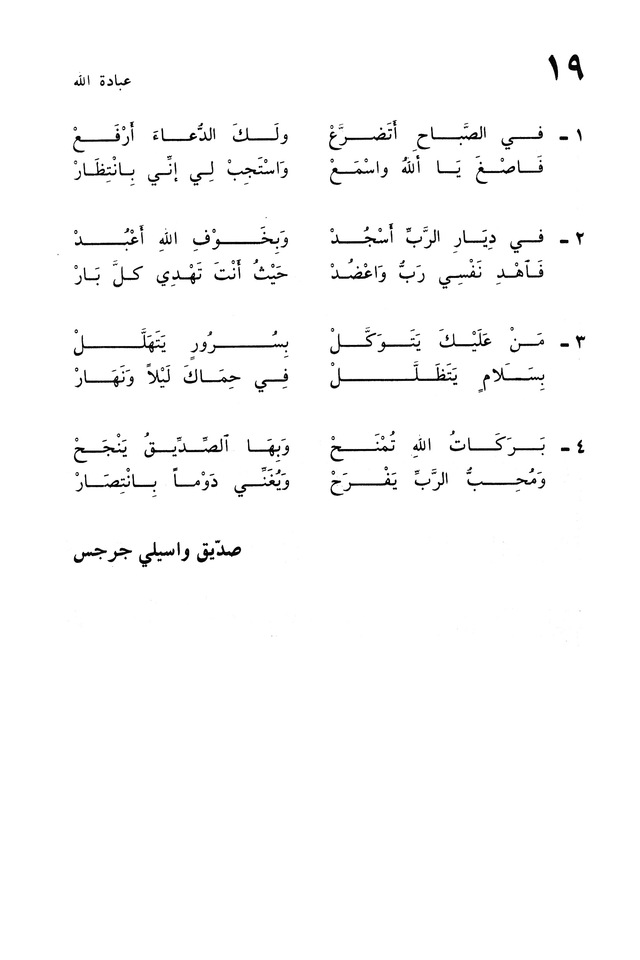 ١٩
عبادة الله
١ - فِي الصَّبَاحِ أَتَضرَّعْ وَلَكَ الدُّعَاءَ أَرْفَعْ
فَاصْغَ يَا أللهُ واسْمَعْ وَاسْتَجِبْ لِي إنِّي بِانْتِظَارْ
٢ - في دِيَارِ الرَّبِّ أَسْجُدْ وَبِخَوْفِ اللهِ أَعْبُدْ
فَاَهْدِ نَفْسِي رَبُّ وَاعْضُدْ حَيْثُ أَنْتَ تَهْدِي كلَّ بَارْ
٣ - مَنْ عَلَيْكَ يَتَوَكَّلْ بِسُرُورٍ يَتَهَلَّلْ
بِسَلَامٍ يَتَظَلَّلْ فِي حِمَاكَ لَيْلاً وَنَهَارْ
٤ - بَرَكَاتُ اللهِ تُمْنَحْ وَبِهَا ٱلصِّدِّيقُ يَنْجَحْ
وَمُحِبُّ الرَّبِّ يَفْرَحْ وَيُغَنِّي دَوْماً بِانْتِصَارْ
صدّيق واسيلي جرجس